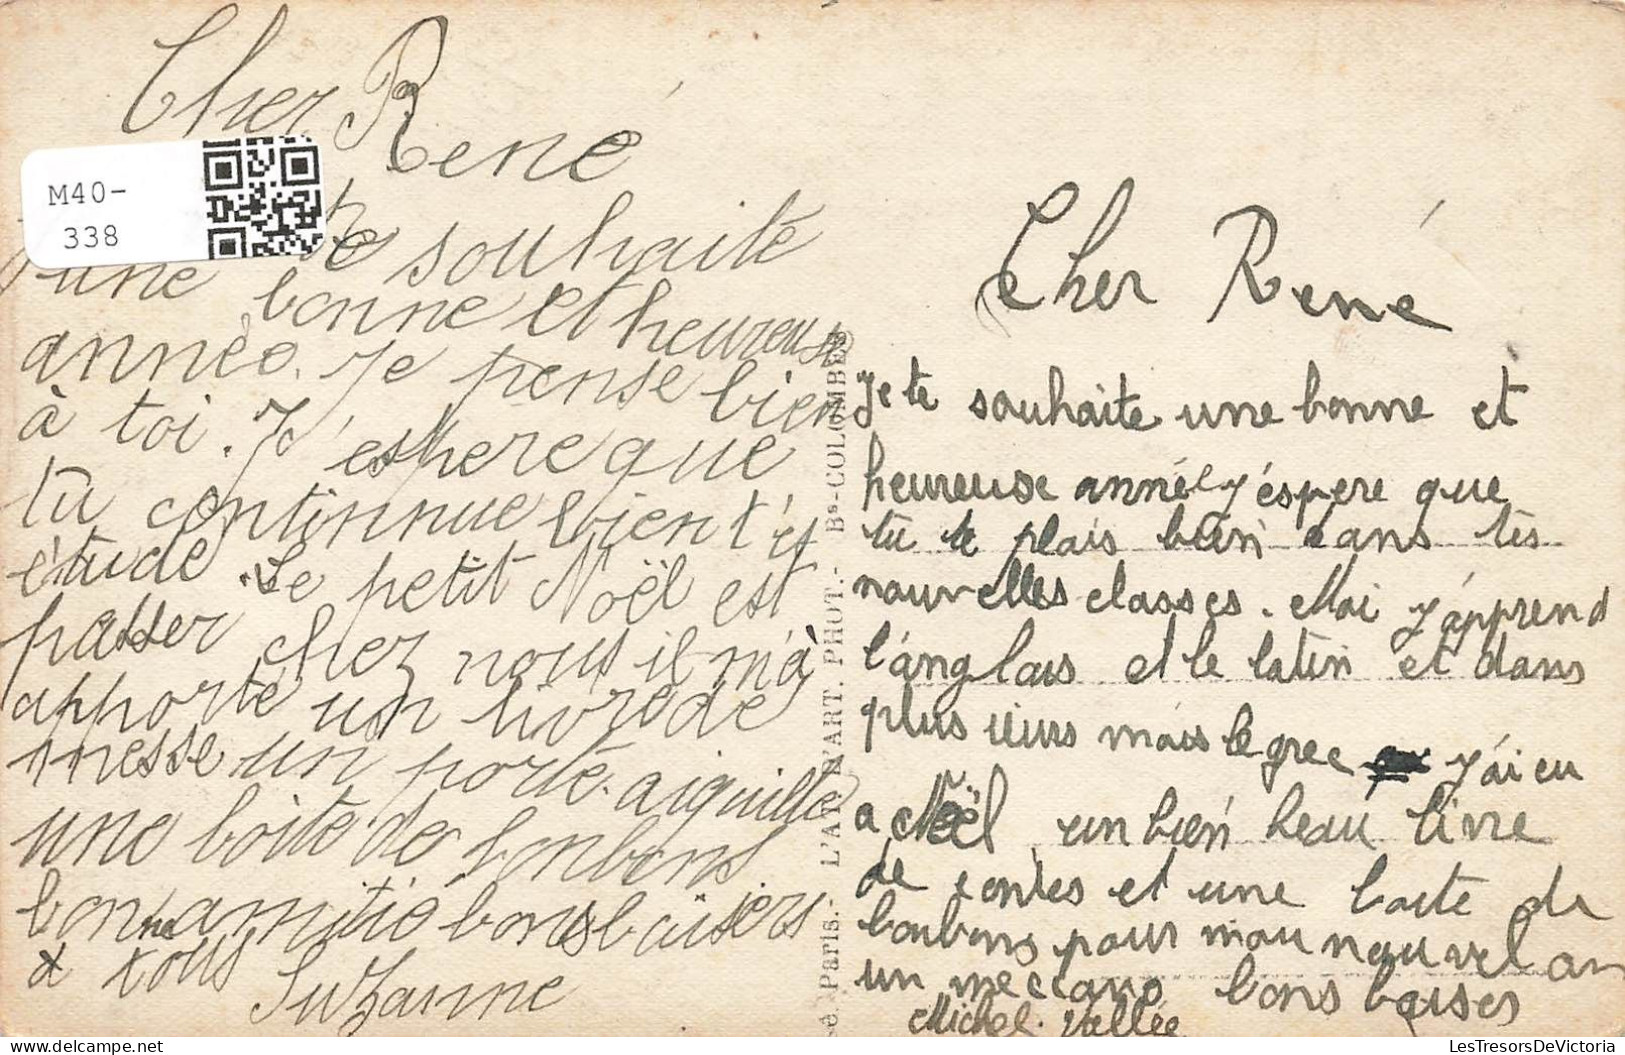 Cher René
M40-
338
te souhaite
une bonne et heureuse
année. Je pense bien
à toi. J'espere que
tu continnue bien t'és
étude. Le petit Noël est
passer chez nous il m'à
apporté un livre de
messe un porte-aiguille
une boite de bonbons
bonne amitié bons baisiers
à tous
Suzanne
Paris.- L'ART. PHOT.- Bs-COLOMBES
Cher René
Je te souhaite une bonne et
heureuse année j'éspere que
tu te plais bien dans tes
nouvelles classes. Moi j'apprend
l'anglais et le latin et dans
plus ieurs mois le grec j'ai eu
a Noël un bien beau livre
de contes et une boite de
bonbons pour mon nouvel an
un meccano bons baises
Michel Vallée
LesTresorsDeVictoria.com